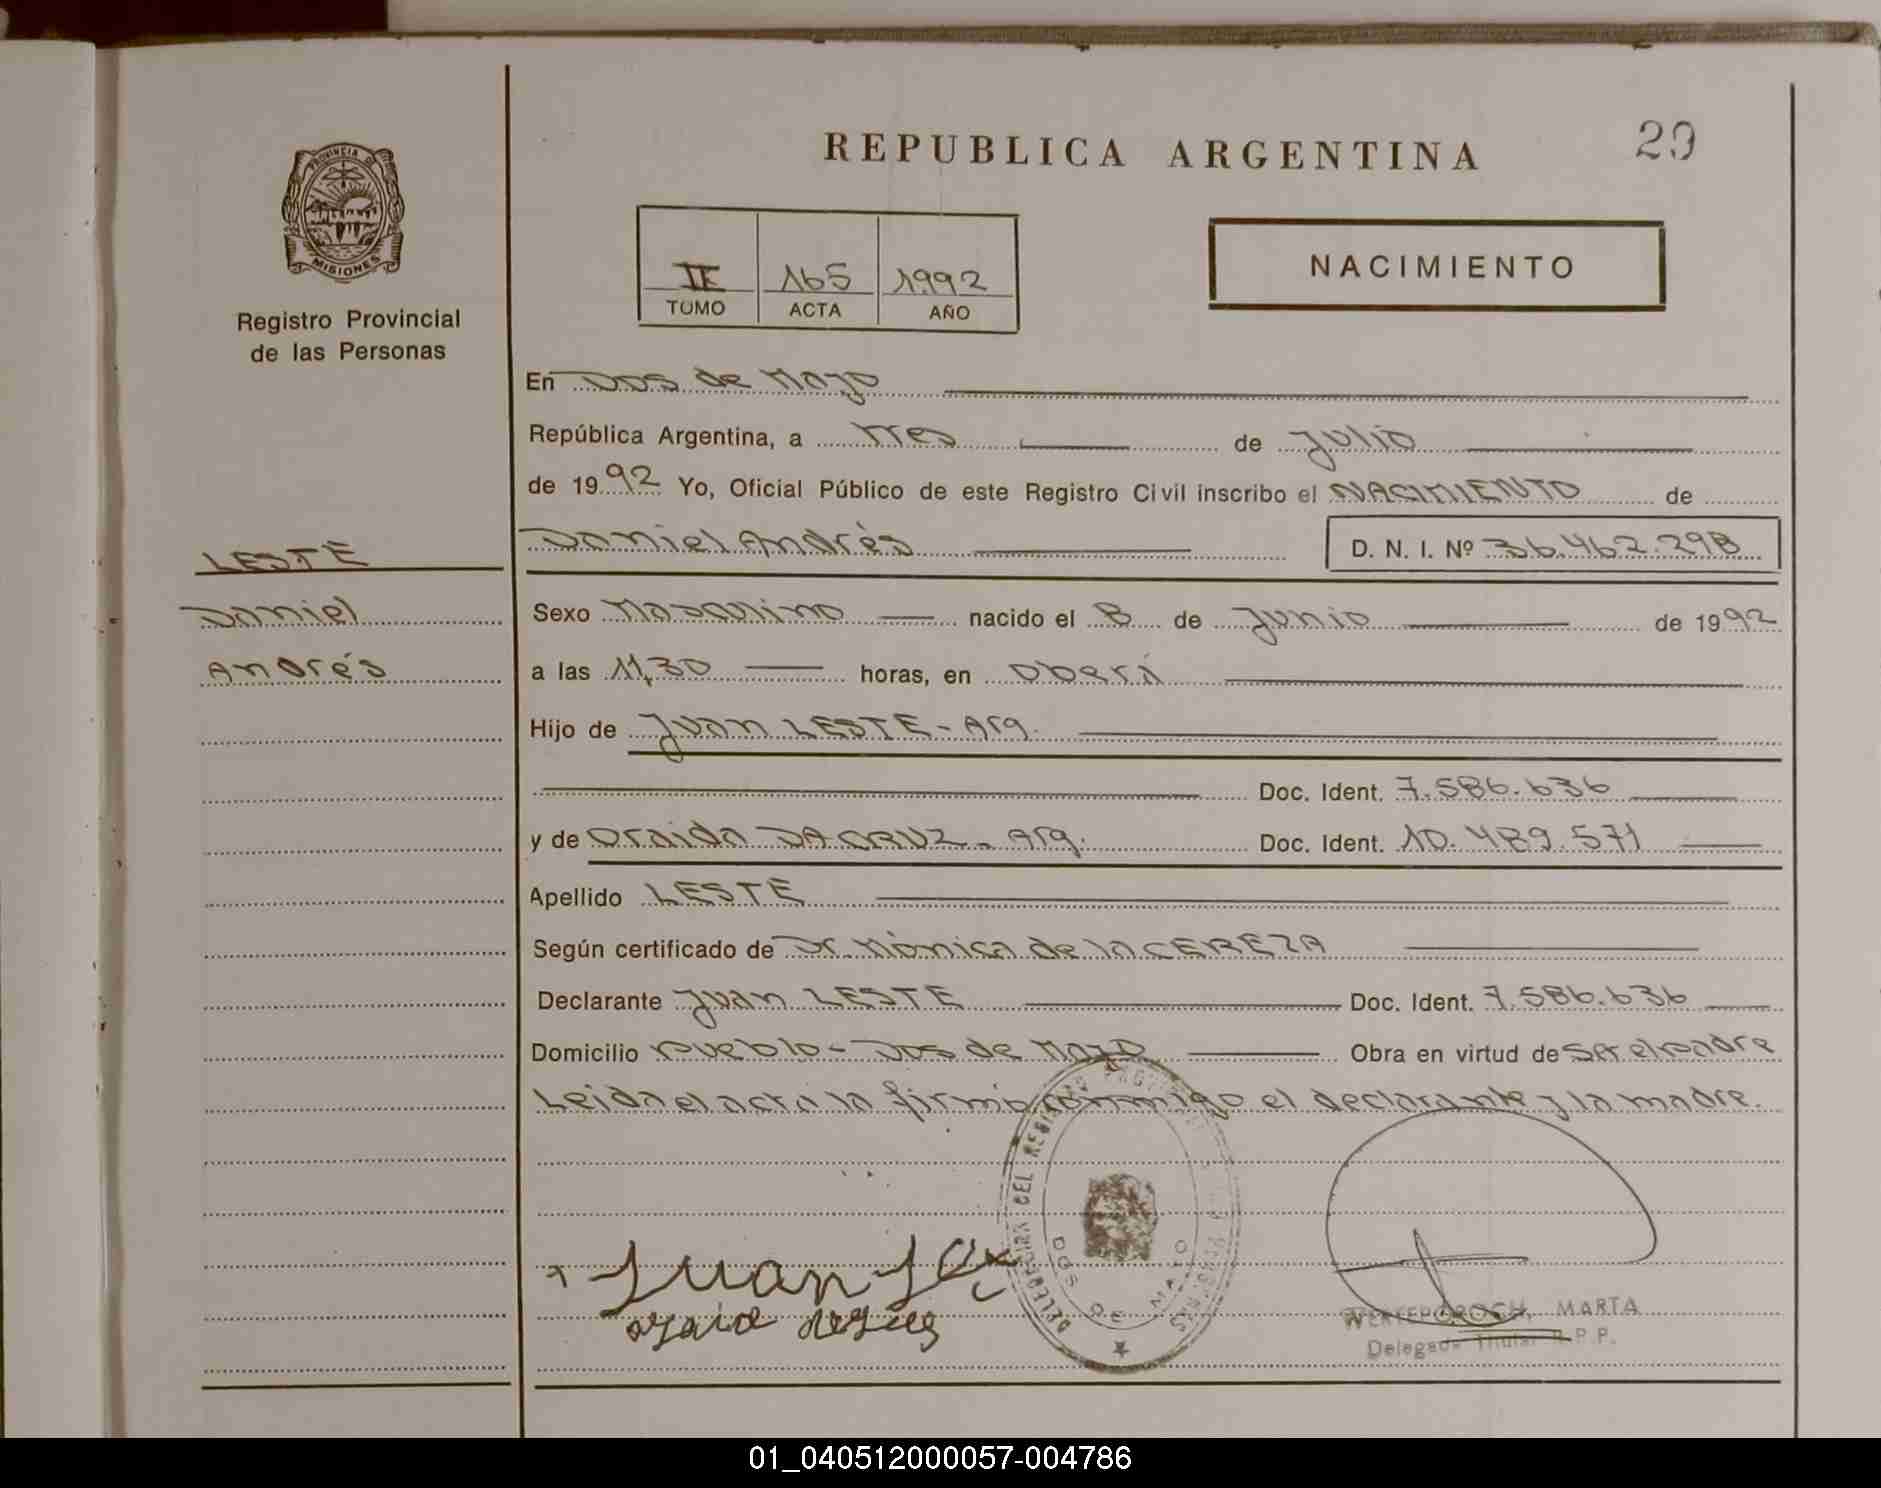 REPUBLICA ARGENTINA
29
PROVINCIA DE
MISIONES
Registro Provincial
de las Personas
II 165 1992
TOMO ACTA AÑO
NACIMIENTO
En Dos de Mayo
República Argentina, a tres de Julio
de 1992 Yo, Oficial Público de este Registro Civil inscribo el NACIMIENTO de
LESTE
Daniel Andrés D. N. I. Nº 36.462.298
Daniel
Andrés
Sexo Masculino nacido el 8 de Junio de 1992
a las 11,30 horas, en Oberá
Hijo de Juan LESTE - Arg.
Doc. Ident. 7.586.636
y de Oraida DA CRUZ - Arg. Doc. Ident. 10.489.571
Apellido LESTE
Según certificado de Dr. Mónica de la CEREZA
Declarante Juan LESTE Doc. Ident. 7.586.636
Domicilio Pueblo - Dos de Mayo Obra en virtud de Ser el padre
Leida el acta la firmó conmigo el declarante y la madre.
DELEGACION DEL REGISTRO PROVINCIAL
DOS DE MAYO
Juan
MARTA
Delegado Titular R.P.P.
01_040512000057-004786